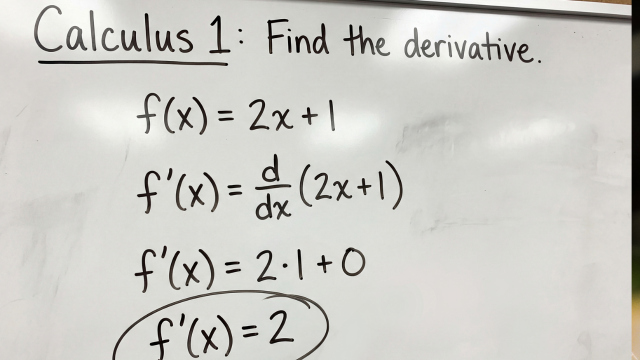 Calculus 1: Find the derivative.
f(x) = 2x + 1
f'(x) = d/dx (2x + 1)
f'(x) = 2·1 + 0
f'(x) = 2